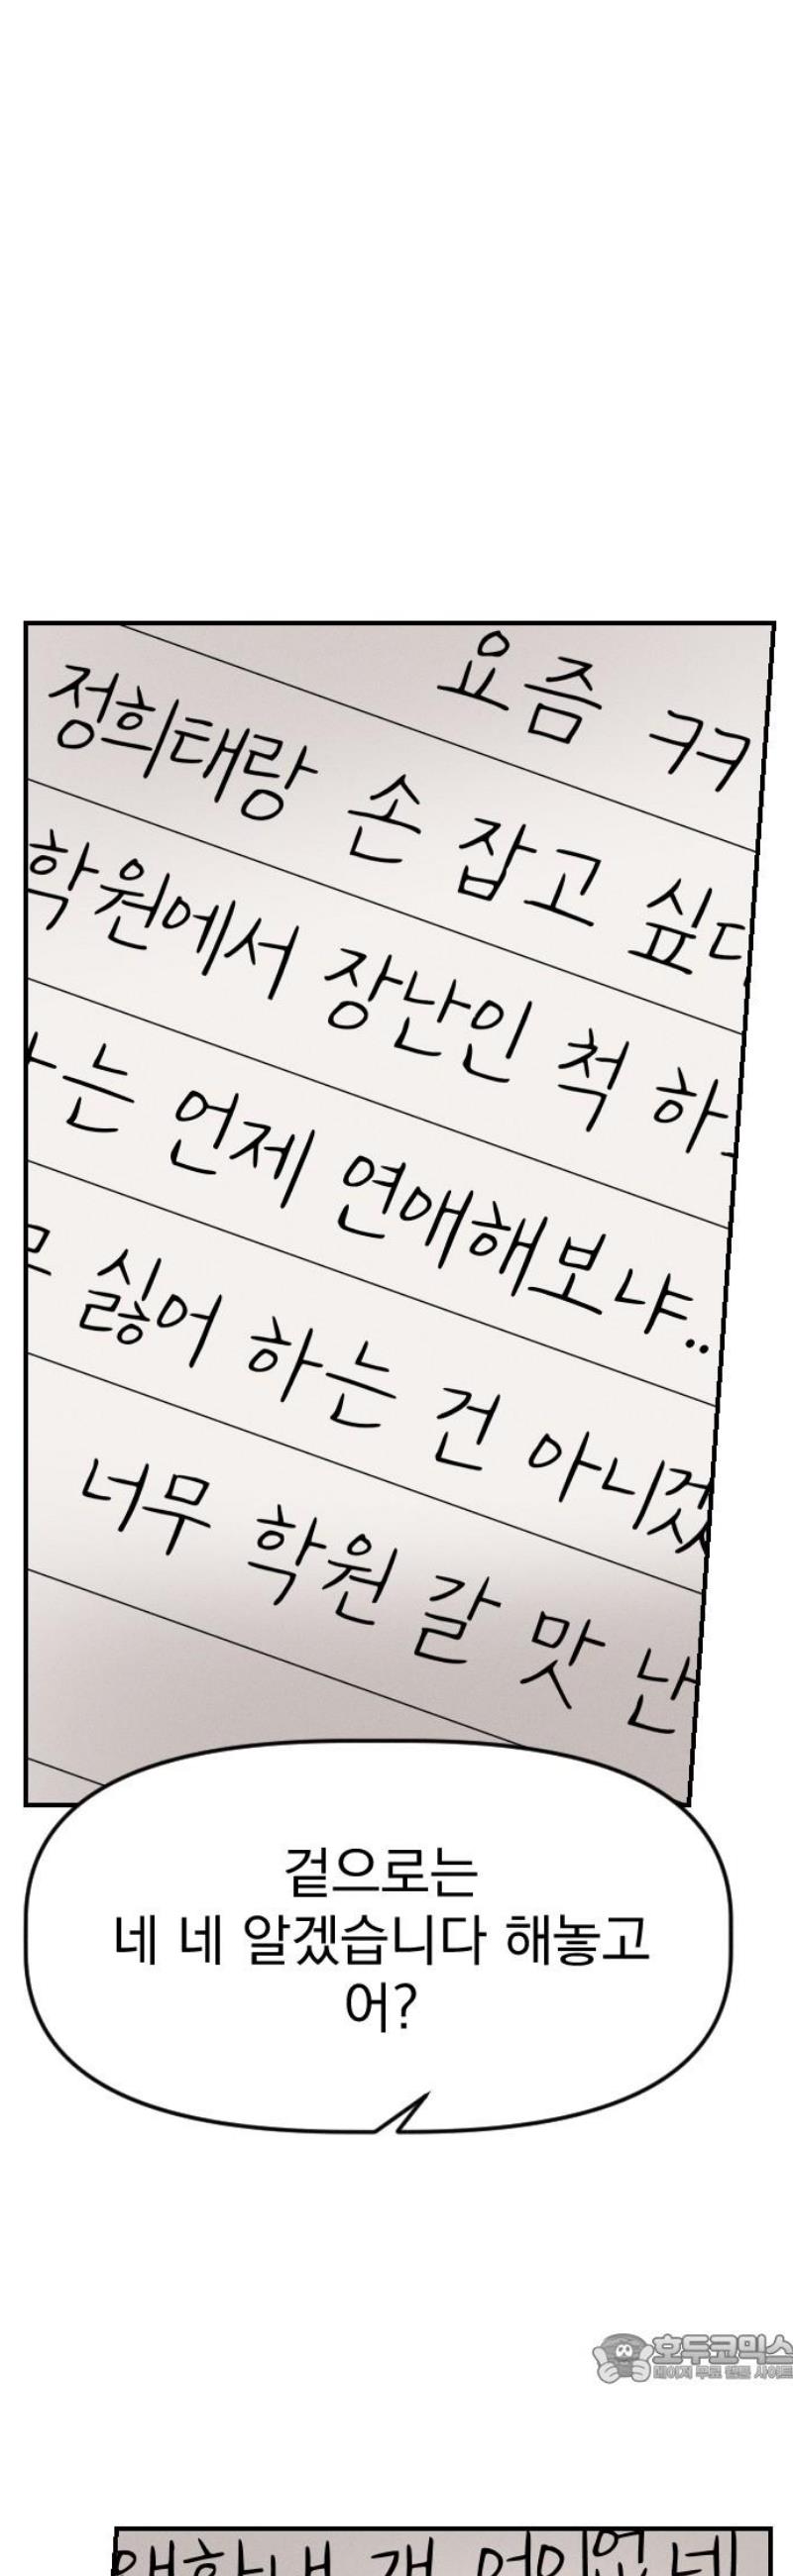 요즘 ㅋㅋ
정희태랑 손 잡고 싶다
학원에서 장난인 척 하
나는 언제 연애해보냐..
싫어 하는 건 아니겠
너무 학원 갈 맛 난
겉으로는
네 네 알겠습니다 해놓고
어?
호두코믹스
데이지 무료 웹툰 사이트